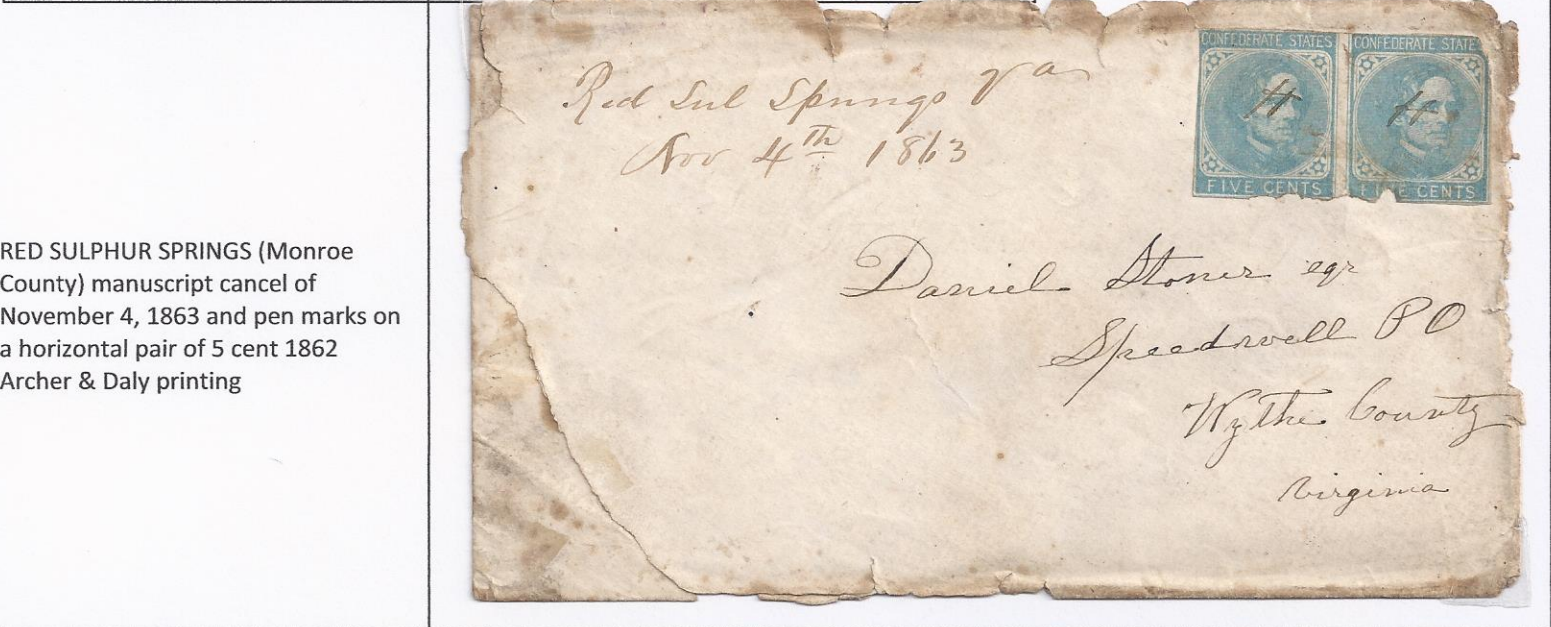 RED SULPHUR SPRINGS (Monroe
County) manuscript cancel of
November 4, 1863 and pen marks on
a horizontal pair of 5 cent 1862
Archer & Daly printing
Red Sul Springs Va
Nov 4th 1863
CONFEDERATE STATES
FIVE CENTS
CONFEDERATE STATE
FIVE CENTS
Daniel Stoner eqr
Speedwell PO
Wythe County
Virginia